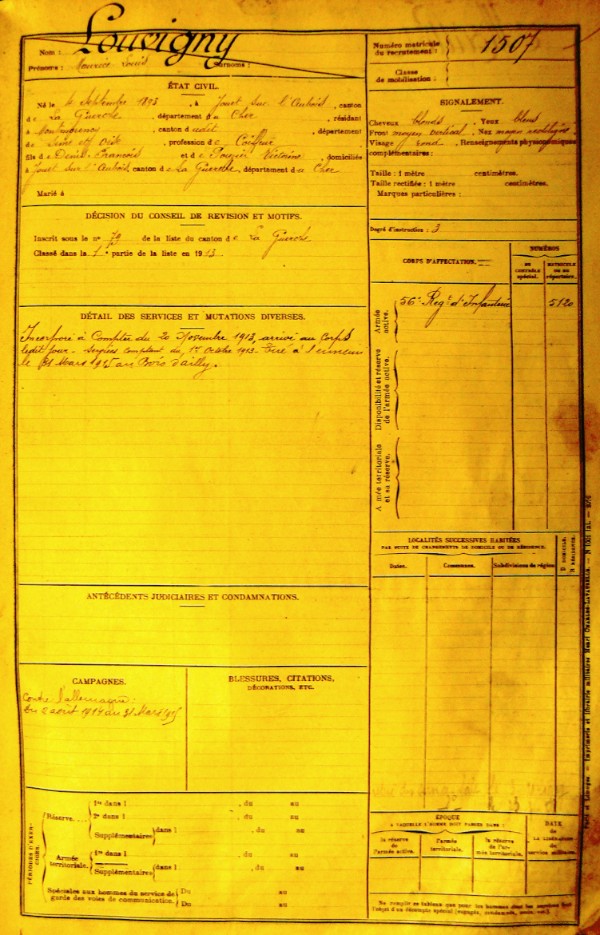 Nom : Louvigny
Prénoms : Maurice Louis Surnoms :
Numéro matricule du recrutement : 1507
Classe de mobilisation :
ÉTAT CIVIL.
Né le 4 Septembre 1893, à Jouet sur l'Aubois, canton
de La Guerche, département du Cher, résidant
à , canton dudit, département
de Seine et Oise, profession de Coiffeur
fils de Denis François et de Victoire, domiciliés
à Jouet sur l'Aubois, canton de La Guerche, département du Cher
Marié à
DÉCISION DU CONSEIL DE REVISION ET MOTIFS.
Inscrit sous le n° 79 de la liste du canton de La Guerche
Classé dans la 1e partie de la liste en 1913.
DÉTAIL DES SERVICES ET MUTATIONS DIVERSES.
Incorporé à Compter du 20 Novembre 1913, arrivé au Corps
ledit jour. Services Comptant du 1er Octobre 1913. Tué à l'ennemi
le 31 Mars 1915 au Bois d'ailly.
ANTÉCÉDENTS JUDICIAIRES ET CONDAMNATIONS.
CAMPAGNES.
Contre l'allemagne
du 2 août 1914 au 31 Mars 1915
BLESSURES, CITATIONS,
DÉCORATIONS, ETC.
PÉRIODES D'EXERCICES.
Réserve.
1re dans l , du au
2e dans l , du au
Supplémentaires dans l , du au
Armée territoriale.
1re dans l , du au
Supplémentaires dans l , du au
Spéciales aux hommes du service de garde des voies de communication.
Du au
Du au
SIGNALEMENT.
Cheveux blonds Yeux bleus
Front moyen vertical, Nez moyen rectiligne
Visage rond, Renseignements physionomiques
complémentaires :
Taille : 1 mètre centimètres.
Taille rectifiée : 1 mètre centimètres.
Marques particulières :
Degré d'instruction : 3
CORPS D'AFFECTATION.
NUMÉROS
DU CONTRÔLE spécial.
MATRICULE OU DU répertoire.
Armée active.
56e Regt d'Infanterie 5120
Disponibilité et réserve de l'armée active.
Armée territoriale et sa réserve.
LOCALITÉS SUCCESSIVES HABITÉES
PAR SUITE DE CHANGEMENTS DE DOMICILE OU DE RÉSIDENCE.
Dates. Communes. Subdivisions de région
D DOMICILE. R RÉSIDENCE.
ÉPOQUE
A LAQUELLE L'HOMME DOIT PASSER DANS :
la réserve de l'armée active.
l'armée territoriale.
la réserve de l'armée territoriale.
DATE de la LIBÉRATION du service militaire.
Paris et Limoges. — Imprimerie et librairie militaires Henri CHARLES-LAVAUZELLE.